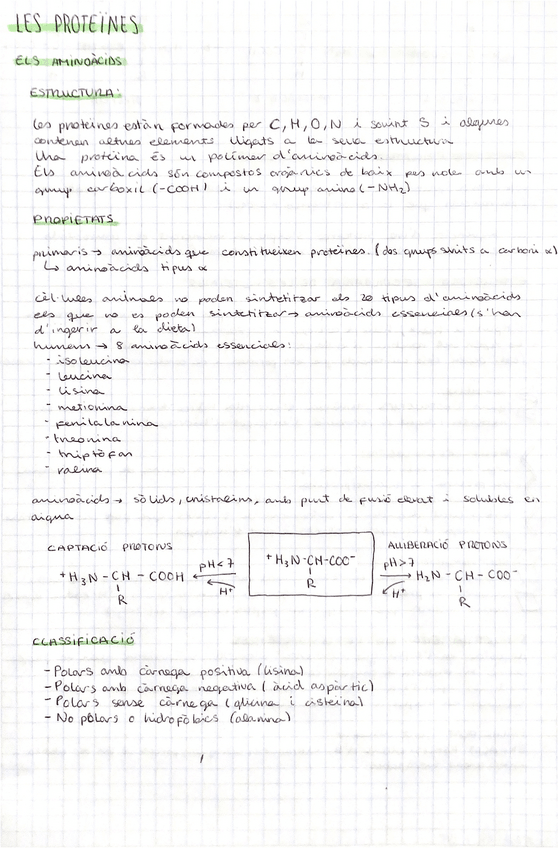 LES PROTEÏNES
ELS AMINOÀCIDS
ESTRUCTURA:
Les proteïnes estàn formades per C, H, O, N i sovint S i algunes
contenen altres elements lligats a la seva estructura
Una proteïna és un polímer d'aminoàcids.
Els aminoàcids són compostos orgànics de baix pes molec amb un
grup carboxil (-COOH) i un grup amino (-NH₂)
PROPIETATS
primaris → aminoàcids que constitueixen proteïnes. (dos grups units a carboni α)
↳ aminoàcids tipus α
Cèl·lules animals no poden sintetitzar els 20 tipus d'aminoàcids
els que no es poden sintetitzar → aminoàcids essencials (s'han
d'ingerir a la dieta)
humans → 8 aminoàcids essencials:
- isoleucina
- leucina
- lisina
- metionina
- fenilalanina
- treonina
- triptòfan
- valina
aminoàcids → sòlids, cristalins, amb punt de fusió elevat i solubles en
aigua
CAPTACIÓ PROTONS
ALLIBERACIÓ PROTONS
⁺H₃N - CH - COOH
R
pH<7
H⁺
⁺H₃N - CH - COO⁻
R
pH>7
H⁺
H₂N - CH - COO⁻
R
CLASSIFICACIÓ
- Polars amb càrrega positiva (lisina)
- Polars amb càrrega negativa (àcid aspàrtic)
- Polars sense càrrega (glicina i cisteïna)
- No polars o hidrofòbics (alanina)
1